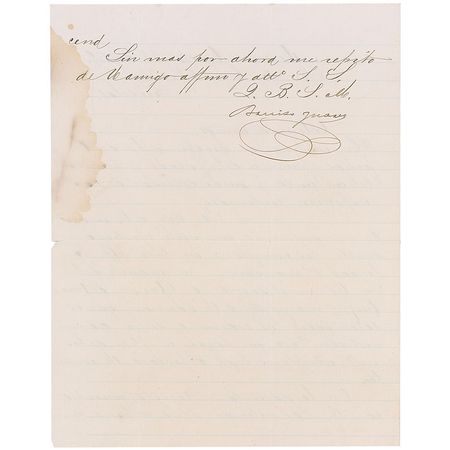 cend
Sin mas por ahora, me repito
de U amigo affmo y atto S. S.
Q. B. S. M.
Benito Juarez